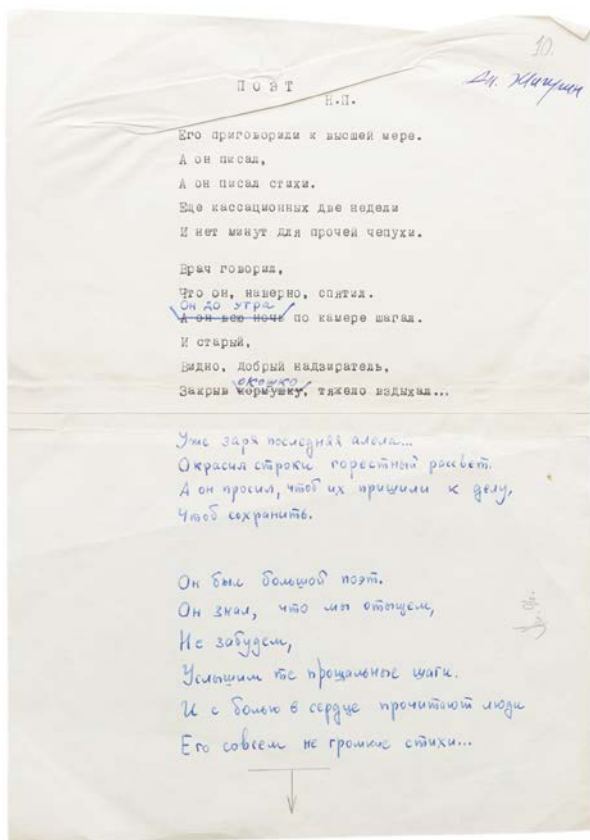 10.
Ан. Жигулин
ПОЭТ
Н.П.
Его приговорили к высшей мере.
А он писал,
А он писал стихи.
Еще кассационных две недели
И нет минут для прочей чепухи.
Врач говорил,
Что он, наверно, спятил.
Он до утра
А он всю ночь по камере шагал.
И старый,
Видно, добрый надзиратель,
окошко
Закрыв кормушку, тяжело вздыхал...
Уже заря последняя алела...
Окрасил строки горестный рассвет.
А он просил, чтоб их пришили к делу,
Чтоб сохранить.
Он был большой поэт.
Он знал, что мы отыщем,
Не забудем,
Услышим те прощальные шаги.
И с болью в сердце прочитают люди
Его совсем не громкие стихи...